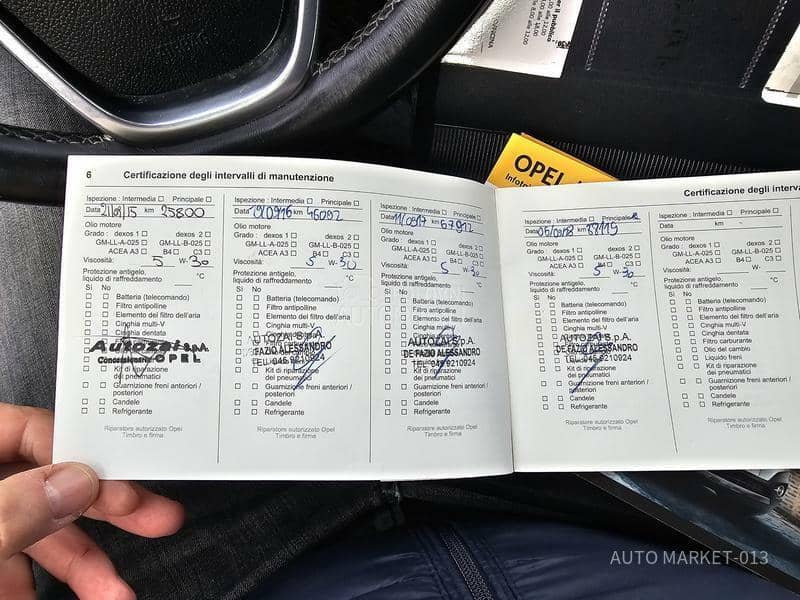 er il pubblico
alle 12.00
alle 18.00
8.00 alle 12.00
OFFICINA
OPEL
6 Certificazione degli intervalli di manutenzione
Ispezione : Intermedia ☐ Principale ☐
Data km 25800
Olio motore
Grado : dexos 1 ☐ dexos 2 ☐
GM-LL-A-025 ☐ GM-LL-B-025 ☐
ACEA A3 ☐ B4 ☐ C3 ☐
Viscosità: 5 W-30
Protezione antigelo,
liquido di raffreddamento °C
Sì No
☐ ☐ Batteria (telecomando)
☐ ☐ Filtro antipolline
☐ ☐ Elemento del filtro dell'aria
☐ ☐ Cinghia multi-V
☐ ☐ Cinghia dentata
Autozai s.p.a.
Concessionaria OPEL
☐ ☐ Kit di riparazione
dei pneumatici
☐ ☐ Guarnizione freni anteriori /
posteriori
☐ ☐ Candele
☐ ☐ Refrigerante
Riparatore autorizzato Opel
Timbro e firma
Ispezione : Intermedia ☐ Principale ☐
Data km 46092
Olio motore
Grado : dexos 1 ☐ dexos 2 ☐
GM-LL-A-025 ☐ GM-LL-B-025 ☐
ACEA A3 ☐ B4 ☐ C3 ☐
Viscosità: 5 W-30
Protezione antigelo,
liquido di raffreddamento °C
Sì No
☐ ☐ Batteria (telecomando)
☐ ☐ Filtro antipolline
☐ ☐ Elemento del filtro dell'aria
☐ ☐ Cinghia multi-V
☐ ☐ Cinghia dentata
AUTOZAI S.p.A.
DE FAZIO ALESSANDRO
TEL. 045.9210924
☐ ☐ Kit di riparazione
dei pneumatici
☐ ☐ Guarnizione freni anteriori /
posteriori
☐ ☐ Candele
☐ ☐ Refrigerante
Riparatore autorizzato Opel
Timbro e firma
Ispezione : Intermedia ☐ Principale ☐
Data 11/09/17 km 67912
Olio motore
Grado : dexos 1 ☐ dexos 2 ☐
GM-LL-A-025 ☐ GM-LL-B-025 ☐
ACEA A3 ☐ B4 ☐ C3 ☐
Viscosità: 5 W-30
Protezione antigelo,
liquido di raffreddamento °C
Sì No
☐ ☐ Batteria (telecomando)
☐ ☐ Filtro antipolline
☐ ☐ Elemento del filtro dell'aria
☐ ☐ Cinghia multi-V
☐ ☐ Cinghia dentata
AUTOZAI S.p.A.
DE FAZIO ALESSANDRO
TEL. 045.9210924
☐ ☐ Kit di riparazione
dei pneumatici
☐ ☐ Guarnizione freni anteriori /
posteriori
☐ ☐ Candele
☐ ☐ Refrigerante
Riparatore autorizzato Opel
Timbro e firma
Certificazione degli interva
Ispezione : Intermedia ☐ Principale
Data km
Olio motore
Grado : dexos 1 ☐ dexos 2 ☐
GM-LL-A-025 ☐ GM-LL-B-025 ☐
ACEA A3 ☐ B4 ☐ C3 ☐
Viscosità: 5 W-30
Protezione antigelo,
liquido di raffreddamento °C
Sì No
☐ ☐ Batteria (telecomando)
☐ ☐ Filtro antipolline
☐ ☐ Elemento del filtro dell'aria
☐ ☐ Cinghia multi-V
☐ ☐ Cinghia dentata
AUTOZAI S.p.A.
DE FAZIO ALESSANDRO
TEL. 045.9210924
☐ ☐ Kit di riparazione
dei pneumatici
☐ ☐ Guarnizione freni anteriori /
posteriori
☐ ☐ Candele
☐ ☐ Refrigerante
Riparatore autorizzato Opel
Timbro e firma
Ispezione : Intermedia ☐ P
Data km
Olio motore
Grado : dexos 1 ☐
GM-LL-A-025 ☐ GM
ACEA A3 ☐
Viscosità:
Protezione antigelo,
liquido di raffreddamento
Sì No
☐ ☐ Batteria (telecoman
☐ ☐ Filtro antipolline
☐ ☐ Elemento del filtro dell'a
☐ ☐ Cinghia multi-V
☐ ☐ Cinghia dentata
☐ ☐ Filtro carburante
☐ ☐ Olio del cambio
☐ ☐ Liquido freni
☐ ☐ Kit di riparazione
dei pneumatici
☐ ☐ Guarnizione freni ante
posteriori
☐ ☐ Candele
☐ ☐ Refrigerante
Riparatore autorizzato Opel
Timbro e firma
AUTO MARKET-013